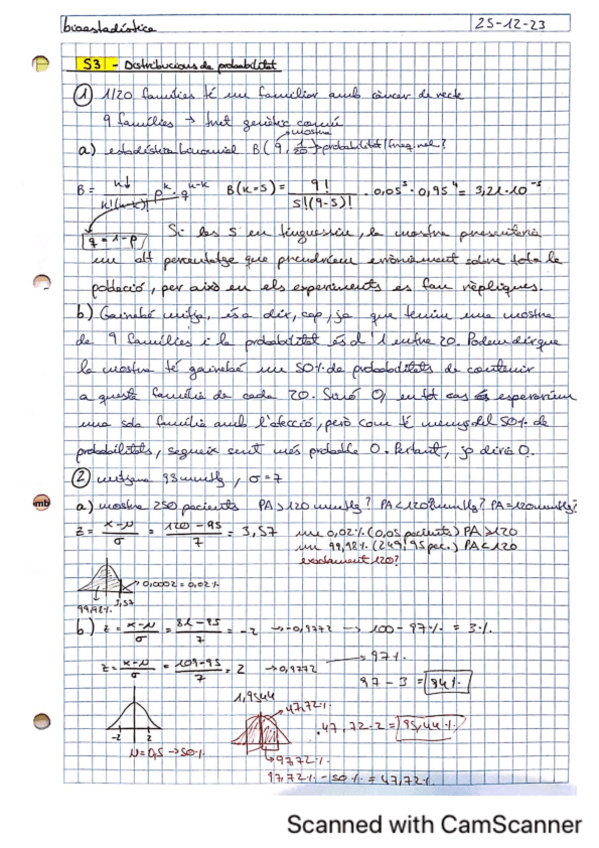 bioestadística 25-12-23
S3 - Distribucions de probabilitat
① 1/20 famílies té un familiar amb càncer de recte
9 famílies → tret genètic comú
mostra
a) estadística binomial B(9, 1/20) → probabilitat/freq rel?
B = n!/k!(n-k)! p^k · q^n-k B(k=5) = 9!/5!(9-5)! · 0,05⁵ · 0,95⁴ = 3,21·10⁻⁵
q = 1-p Si les 5 en tinguessin, la mostra presentaria
un alt percentatge que prendríem erròniament sobre tota la
població, per això en els experiments es fan rèpliques.
b) Gairebé mitja, és a dir, cap, ja que tenim una mostra
de 9 famílies i la probabilitat és d'1 entre 20. Podem dir que
la mostra té gairebé un 50% de probabilitats de contenir
a questa família de cada 20. Sinó 0, en tot cas és esperaríem
una sola família amb l'afecció, però com té menys del 50% de
probabilitats, segueix sent més probable 0. Pertant, jo diria 0.
② mitjana 95mmHg, σ=7
a) mostra 250 pacients PA>120 mmHg? PA<120mmHg? PA=120mmHg?
z = x-μ/σ = 120-95/7 = 3,57 un 0,02% (0,05 pacients) PA≥120
un 99,98% (249,95 pac.) PA<120
exactament 120?
0,0002 = 0,02%
99,98% 3,57
b) z = x-μ/σ = 81-95/7 = -2 → -0,9772 → 100-97% = 3%
z = x-μ/σ = 109-95/7 = 2 → 0,9772 → 97%
97 - 3 = 94%
1,9544
47,72%
47,72·2 = 95,44%
-2 2
μ=0,5 → 50%
97,72%
97,72% - 50% = 47,72%
mb
Scanned with CamScanner